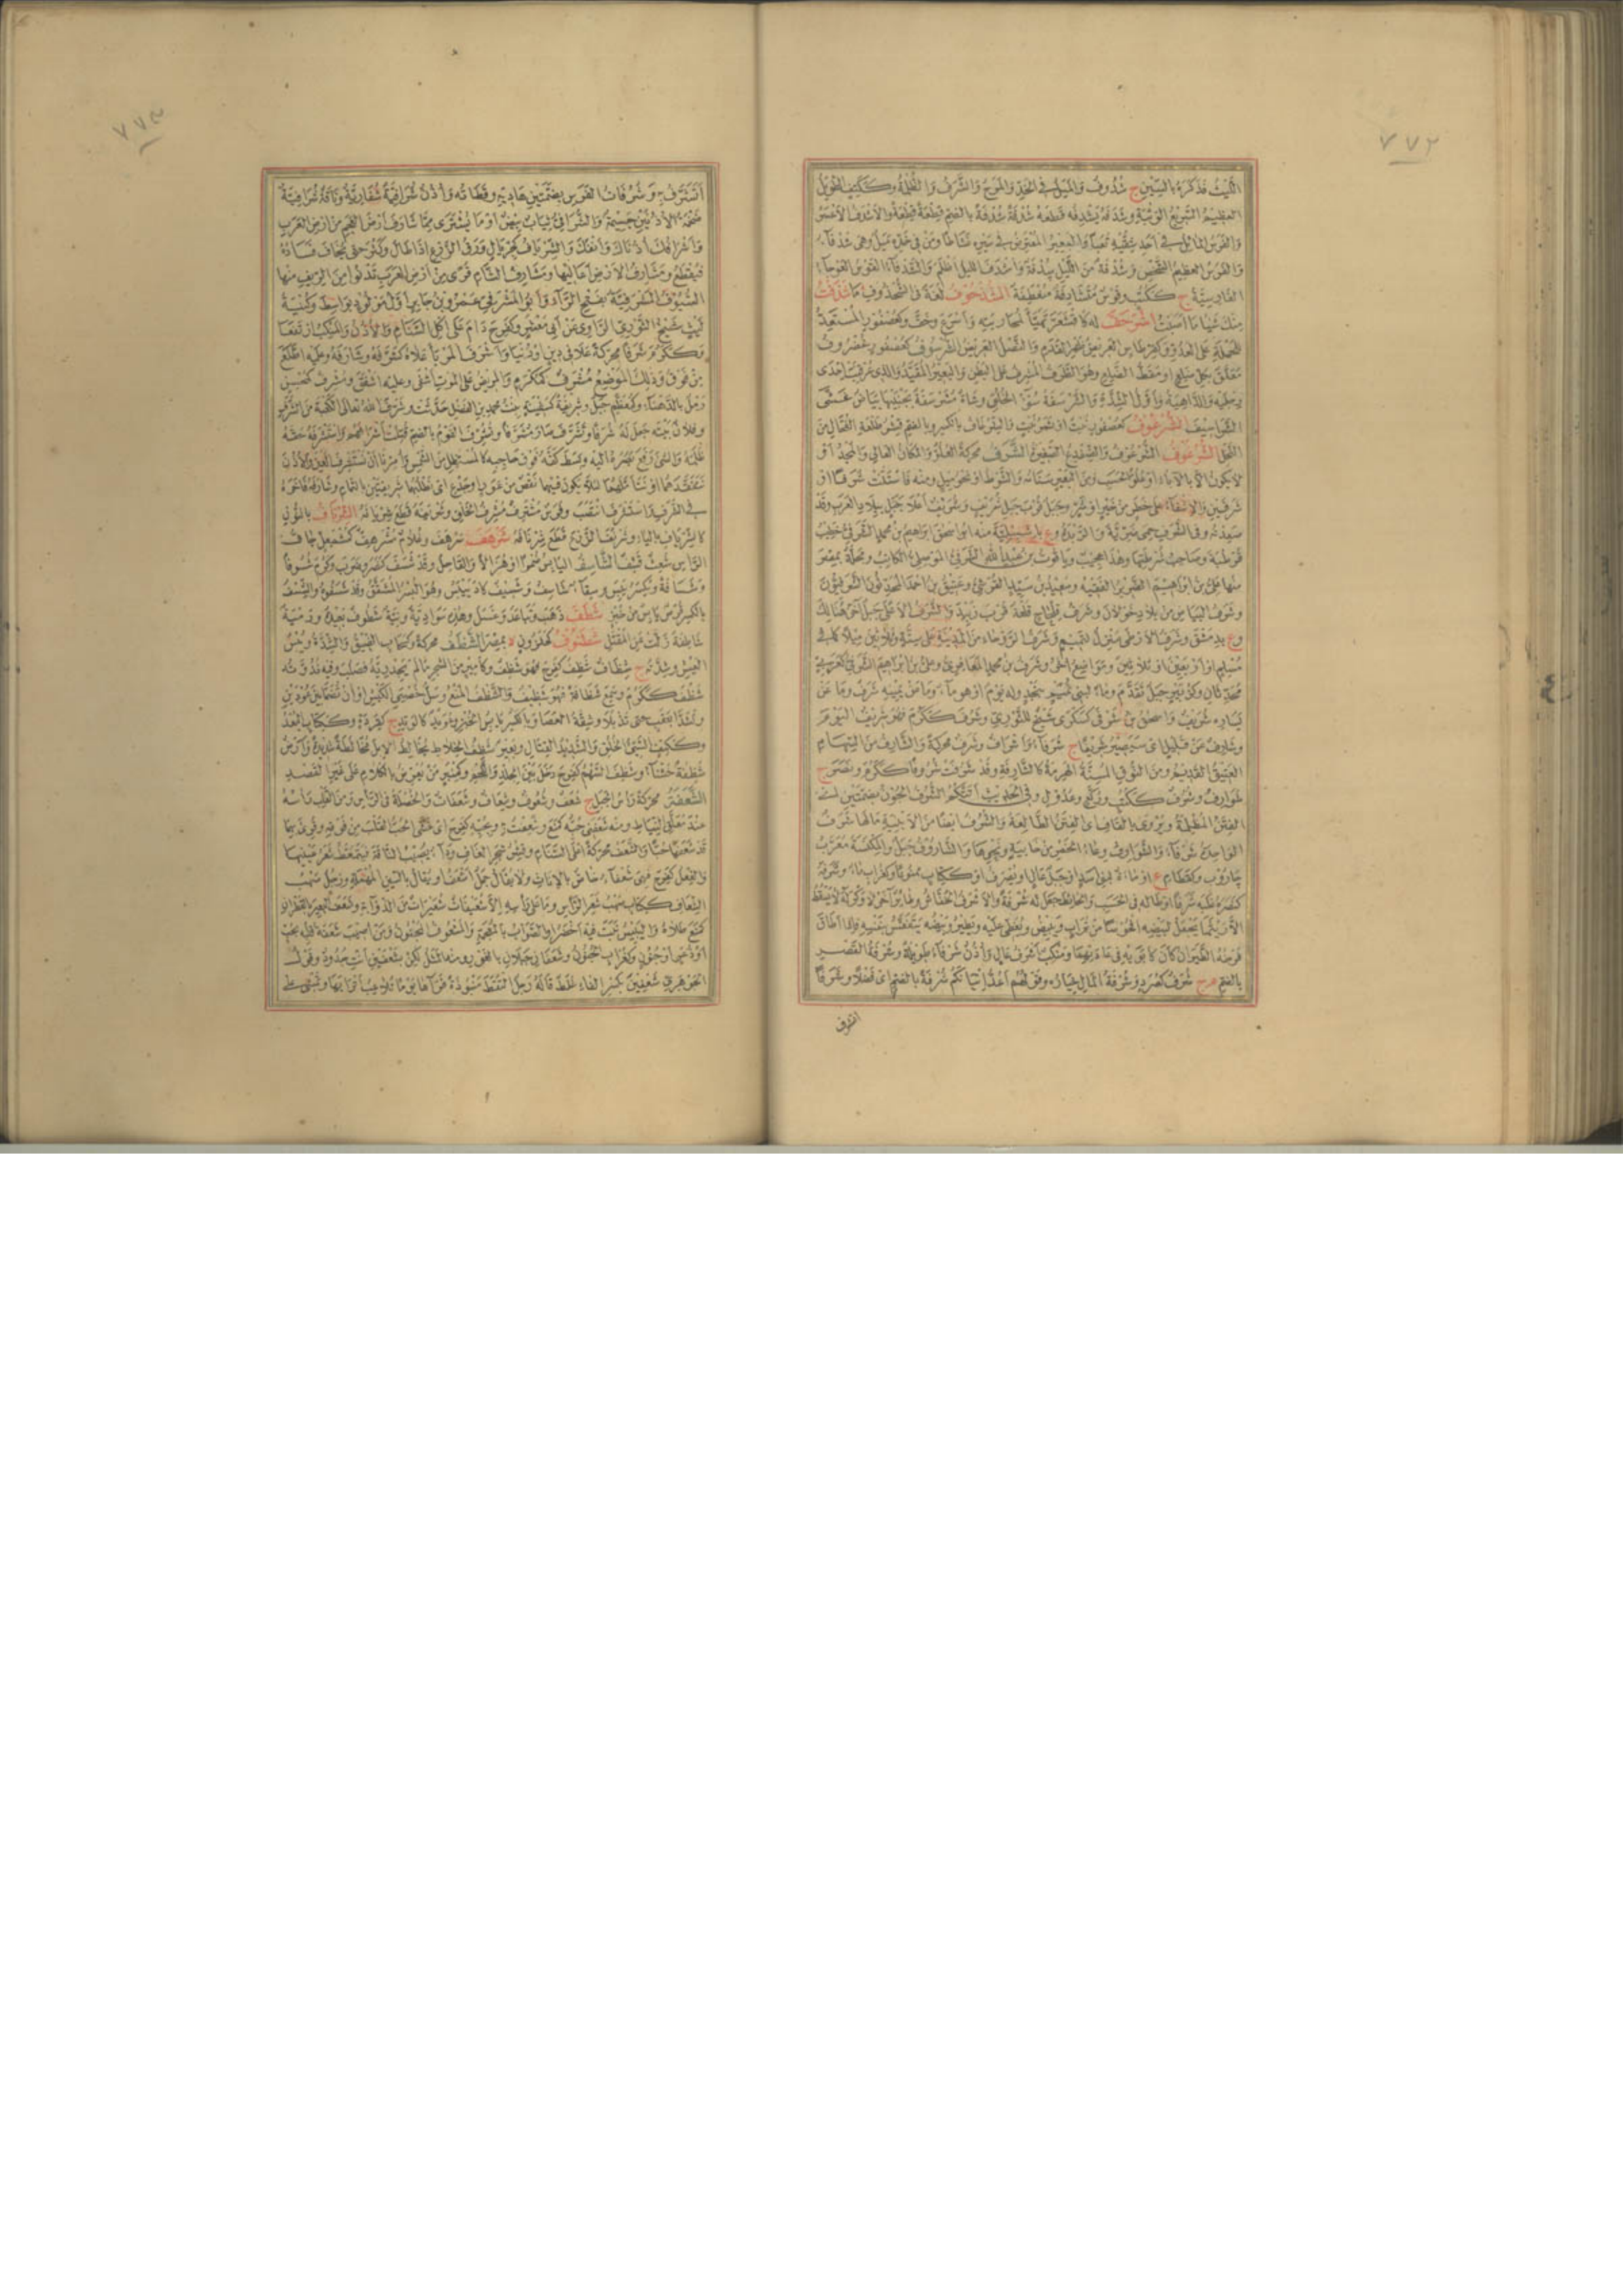 ٧٧٢
الليث فذكره بالسين ج شدوف والميل في الخد والمرح والشرف والظلمة وككتف الطويل
العظيم السريع الوثبة وشدفه يشدفه قطعه شدفة شدفة بالضم قطعة قطعة والأشدف الأعسر
والفرس المائل في أحد شقيه بغيا والبعير المعترض في سيره نشاطا ومن في خده ميل وهي شدفاء
والفرس العظيم الشخص وشدفة من الليل سدفة وأشدف الليل أظلم والشدفاء القوس العوجاء
الفارسية ج ككتب وقوس متشادفة منعطفة الشذحوف لغة في الشحذوف ما شذفت
منك شيئا ما أصبت اشرحف له كاقشعر تهيأ لمحاربته وأسرع وخف وكعصفور المستعد
للحملة على العدو وكقرطاس العريض ظهر القدم والنصل العريض الشرسوف كعصفور غضروف
معلق بكل ضلع أو مقط الضلع وهو الطرف المشرف على البطن والبعير المقيد والذي عرقبت إحدى
رجليه والداهية وأول الشدة والشرسفة سوء الخلق وشاة مشرسفة بجنبيها بياض غشى
الشراسيف الشرعوف كعصفور نبت أو ثمر نبت والشرعاف بالكسر وبالضم قشر طلعة الفحال من
النخل الشرغوف الشرعوف والضفدع الصغيرة الشرف محركة العلو والمكان العالي والمجد أو
لا يكون إلا بالآباء أو علو الحسب ومن البعير سنامه والشوط أو نحو ميل ومنه فاستنت شرفا أو
شرفين والإشفاء على خطر من خير أو شر وجبل قرب جبل شريف وشريف أعلا جبل ببلاد العرب وقد
صعدته وفي الشرف حمى ضرية والربذة وع بإشبيلية منه أبو إسحق إبراهيم بن محمد الشرفي خطيب
قرطبة وصاحب شرطتها وهذا عجيب وياقوت بن عبد الله الشرفي الموصلي الكاتب ومحلة بمصر
منها علي بن إبراهيم الضرير الفقيه وسعيد بن سيد القرشي وعتيق بن أحمد المحدثون الشرفيون
وشرف البياض من بلاد خولان وشرف قلحاح قلعة قرب زبيد والشرف الأعلى جبل آخر هنالك
وع بدمشق وشرف الأرطى منزل لتميم وشرف الروحاء من المدينة على ستة وثلاثين ميلا كما في
مسلم أو أربعين أو ثلاثين ومواضع أخر وشرف بن محمد المعافري وعلي بن إبراهيم الشرفي كعربي
محدثان وكزبير جبل تقدم وماء لبني نمير بنجد وله يوم أو هو ماء وما عن يمينه شرف وما عن
يساره شريف وإسحق بن شرفى كسكرى شيخ للثوري وشرف ككرم فهو شريف اليوم
وشارف عن قليل أي سيصير شريفا ج شرفاء وأشراف وشرف محركة والشارف من السهام
العتيق القديم ومن النوق المسنة الهرمة كالشارفة وقد شرفت شروفا ككرم ونصر ج
شوارف وشرف ككتب وركع وعدول وفي الحديث أتتكم الشرف الجون بضمتين أي
الفتن المظلمة ويروى بالقاف أي الفتن الطالعة والشرف أيضا من الأبنية ما لها شرف
الواحدة شرفاء والشوارف وعاء الخمر من خابية ونحوها والشاروف جبل والمكنسة معرب
جاروب وكقطام ع أو ماء لبني أسد أو جبل عال أو يصرف أو ككتاب ممنوعا وكغراب ماء وشرفه
كنصره غلبه شرفا أو طاله في الحسب والحائط جعل له شرفة والأشرف الخفاش وطائر آخر لا وكر له لا يسقط
إلا ريثما يجعل لبيضه أفحوصا من تراب ويبيض ويغطي عليه ويطير وبيضه يتفقس بنفسه فإذا أطاق
فرخه الطيران كان كأبويه في عادتهما ومنكب أشرف عال وأذن شرفاء طويلة وشرفة القصر
بالضم م ج شرف كصرد وشرفة المال خياره وقولهم أعد إتيانكم شرفة بالضم أي فضلا وشرفا
اتشرف
٧٧٣
أتشرف به وشرفات الفرس بضمتين هاديه وقطاته وأذن شرافية شفارية وناقة شرافية
ضخمة الأذنين جسيمة والشرافي ثياب بيض أو ما يشترى مما شارف أرض العجم من أرض العرب
وأشراف أذناك وأنفك والشرياف كجريال ورق الزرع إذا طال وكثر حتى يخاف فساده
فيقطع ومشارف الأرض أعاليها ومشارف الشأم قرى من أرض العرب تدنو من الريف منها
السيوف المشرفية بفتح الراء وأبو المشرفي عمرو بن جابر أول مولود بواسط وكنية
ليث شيخ الثوري الراوي عن أبي معشر وكفرح دام على أكل السنام والأذن والمنكب ارتفعا
وككرم شرفا محركة علا في دين أو دنيا وأشرف المربأ علاه كشرفه وشارفه وعليه اطلع
من فوق وذلك الموضع مشرف كمكرم والمريض على الموت أشفى وعليه أشفق ومشرف كمحسن
رمل بالدهناء وكمعظم جبل وشريفة كسفينة بنت محمد بن الفضل حدثت وشرف الله تعالى الكعبة من الشرف
وفلان بيته جعل له شرفا وتشرف صار مشرفا وتشرف القوم بالضم قتلت أشرافهم واستشرفه حقه
ظلمه والشيء رفع بصره إليه وبسط كفه فوق حاجبه كالمستظل من الشمس وأمرنا أن نستشرف العين والأذن
نتفقدهما أو نتأملهما لئلا يكون فيهما نقص من عور أو جدع أي نطلبهما شريفتين بالتمام وشارفه فاخره
في الشرف واستشرف انتصب وفرس مشترف مشرف الخلق وشرنفه قطع شرنافه الشرناف بالنون
كالشرياف بالياء وشرنف الزرع قطع شرنافه شرهف سرهف وغلام مشرهف كمشمعل جاف
الرأس شعث قشف الشاسف اليابس ضمورا وهزالا والقاحل وقد شسف كنصر وضرب وكرم شسوفا
وشسافة ويكسر يبس وسقاء شاسف وشسيف كاد ييبس وهو البسر المشقق وقد شسفوه والشسف
بالكسر قرص يابس من خبز شطف ذهب وتباعد وغسل وهذه سوادية ونية شطوف بعيدة ورمية
شاطفة زلت عن المقتل شطنوف كحلزون ة بمصر الشظف محركة وكسحاب الضيق والشدة ويبس
العيش وشدته ج شظاف شظف كفرح فهو شظف وكأمير من الشجر ما لم يجد ريه فصلب وفيه ندوته
شظف ككرم وسمع شظافة فهو شظيف والشظف المنع وسل خصيي الكبش أو أن تضما بين عودين
وتشدا بعقب حتى تذبلا وشقة العصا وبالكسر يابس الخبز وعويد كالوتد ج كقردة وككتاب البعد
وككتف السيئ الخلق والشديد القتال وبعير شظف الخلاط يخالط الإبل مخالطة شديدة وأرض
شظفة خشناء وشظف السهم كفرح دخل بين الجلد واللحم وكمنبر من يعرض بالكلام على غير القصد
الشعفة محركة رأس الجبل ج شعف وشعوف وشعاف وشعفات والخصلة في الرأس ومن القلب رأسه
عند معلق النياط ومنه شعفني حبه كمنع وشعفت به وبحبه كفرح أي غشي الحب القلب من فوقه وقرئ بهما
قد شعفها حبا والشعف محركة أعلى السنام وقشر شجر الغاف وداء يصيب الناقة فيتمعط شعر عينيها
والفعل كفرح فهي شعفاء خاص بالإناث ولا يقال جمل أشعف أو يقال بالسين المهملة ورجل صهب
الشعاف ككتاب صهب شعر الرأس وما على رأسه إلا شعيفات شعيرات من الذؤابة وشعف البعير بالقطران
كمنع طلاه به واليبيس نبت فيه أخضر أو الصواب بالمعجمة والمشعوف المجنون ومن أصيب شعفة قلبه بحب
أو ذعر أو جنون وكغراب الجنون وشعفان جبلان بالغور ومنه المثل لكن بشعفين أنت جدود وقول
الجوهري شعفين بكسر الفاء غلط قاله رجل التقط منبوذة فرآها يوما تلاعب أترابها وتمشي على